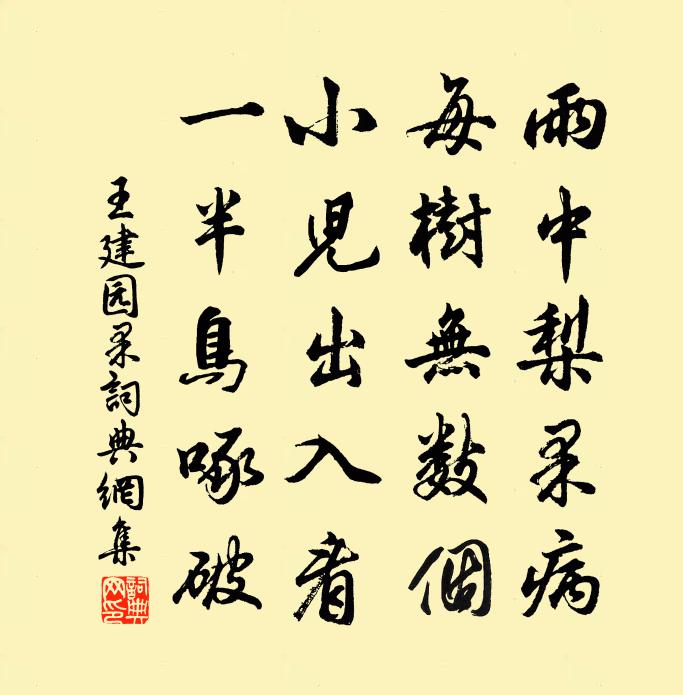 雨中梨果病
每樹無數個
小兒出入看
一半鳥啄破
王建园果詞典網集
詞典網印